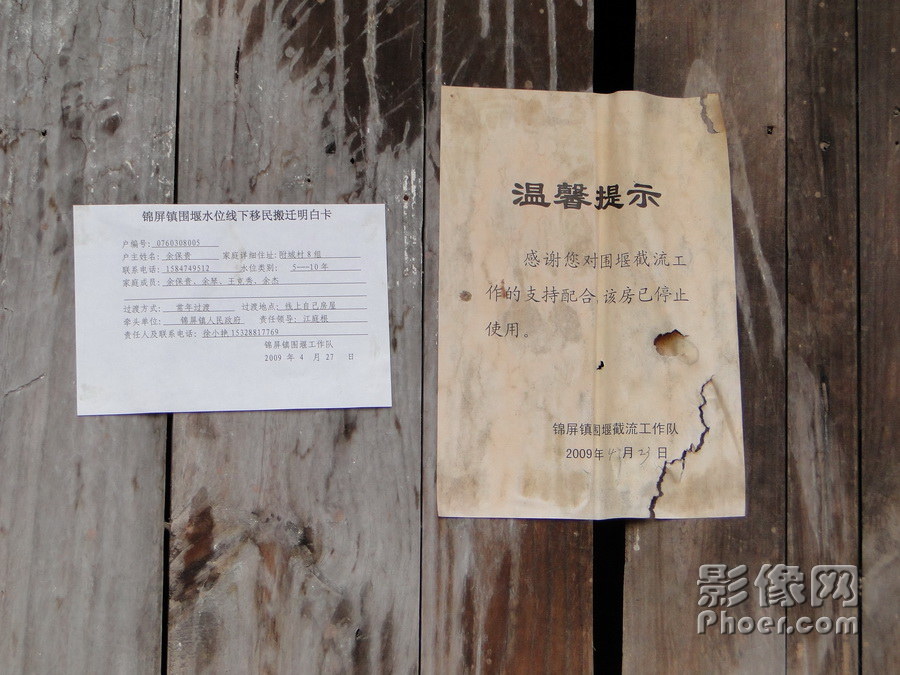 锦屏镇围堰水位线下移民搬迁明白卡
户编号: 0760308005
户主姓名: 余保贵 家庭详细住址: 附城村8组
联系电话: 1584749512 水位类别: 5—10年
家庭成员: 余保贵、余琴、王竟秀、余杰
过渡方式: 常年过渡 过渡地点: 线上自己房屋
牵头单位: 锦屏镇人民政府 责任领导: 江庭根
责任人及联系电话: 徐小艳 15328817769
锦屏镇围堰工作队
2009 年 4 月 27 日
温馨提示
感谢您对围堰截流工
作的支持配合,该房已停止
使用。
锦屏镇围堰截流工作队
2009年4月23日
影像网
Phoer.com